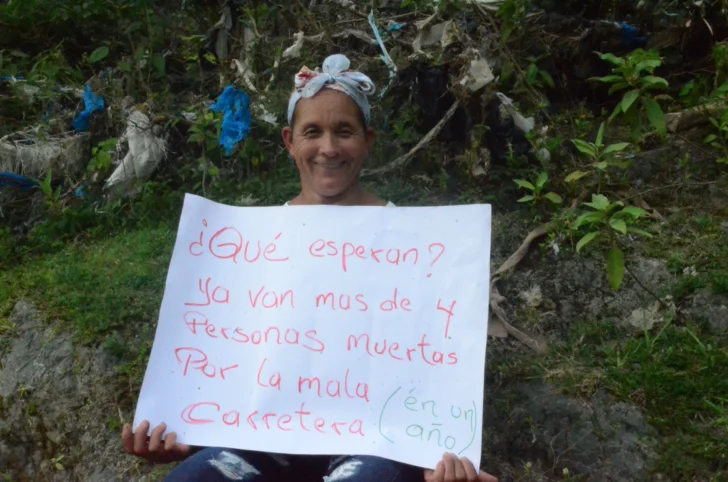 ¿Qué esperan?
Ya van mas de 4
Personas muertas
Por La mala
Carretera (en un
año)